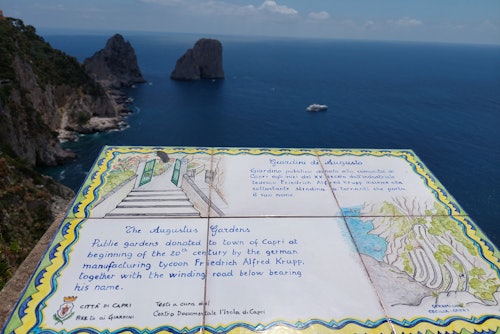 Giardini di Augusto
Giardino pubblico donato alla comunità di
Capri agli inizi del XX secolo dall'industriale
tedesco Friedrich Alfred Krupp insieme alla
sottostante stradina a tornanti che porta
il suo nome
The Augustus Gardens
Public gardens donated to town of Capri at
beginning of the 20th century by the german
manufacturing tycoon Friedrich Alfred Krupp,
together with the winding road below bearing
his name.
CITTÀ DI CAPRI
Testi a cura del
Centro Documentale l'Isola di Capri